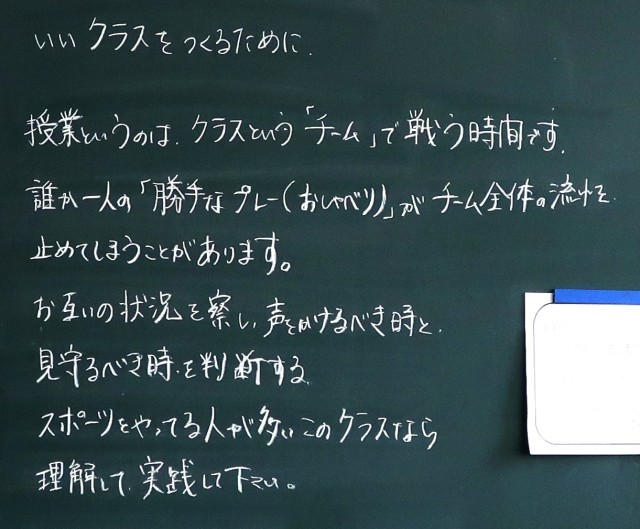 いいクラスをつくるために.
授業というのは、クラスという「チーム」で戦う時間です.
誰か一人の「勝手なプレー(おしゃべり)」がチーム全体の流れを
止めてしまうことがあります。
お互いの状況を察し、声をかけるべき時と、
見守るべき時を判断する
スポーツをやってる人が多いこのクラスなら
理解して、実践して下さい。